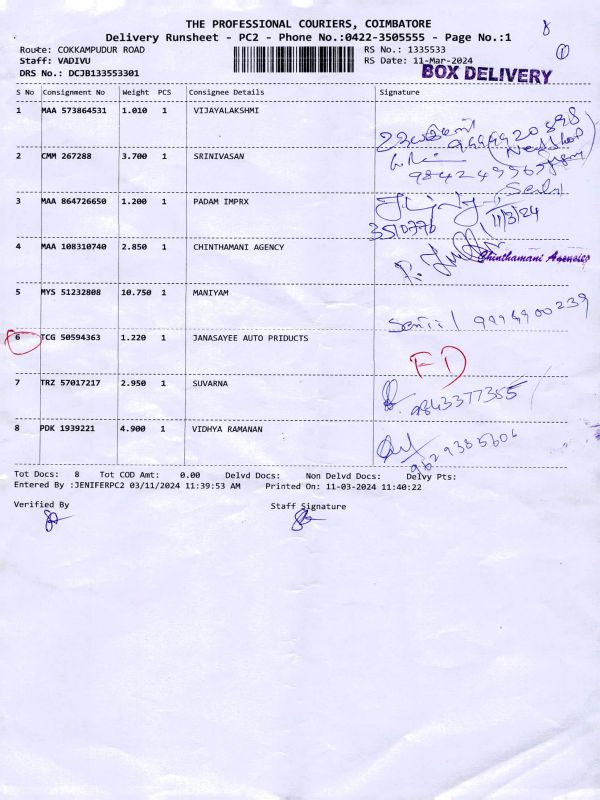 THE PROFESSIONAL COURIERS, COIMBATORE
8
Delivery Runsheet - PC2 - Phone No.:0422-3505555 - Page No.:1
1
Route: COKKAMPUDUR ROAD RS No.: 1335533
Staff: VADIVU RS Date: 11-Mar-2024
BOX DELIVERY
DRS No.: DCJB133553301
S No Consignment No Weight PCS Consignee Details Signature
1 MAA 573864531 1.010 1 VIJAYALAKSHMI
2 CMM 267288 3.700 1 SRINIVASAN
3 MAA 864726650 1.200 1 PADAM IMPRX
11/3/24
4 MAA 108310740 2.850 1 CHINTHAMANI AGENCY
Chinthamani Agencies
5 MYS 51232808 10.750 1 MANIYAM
9994900239
6 TCG 50594363 1.220 1 JANASAYEE AUTO PRIDUCTS
FD
7 TRZ 57017217 2.950 1 SUVARNA
9843377355
8 PDK 1939221 4.900 1 VIDHYA RAMANAN
9629385606
Tot Docs: 8 Tot COD Amt: 0.00 Delvd Docs: Non Delvd Docs: Delvy Pts:
Entered By :JENIFERPC2 03/11/2024 11:39:53 AM Printed On: 11-03-2024 11:40:22
Verified By Staff Signature